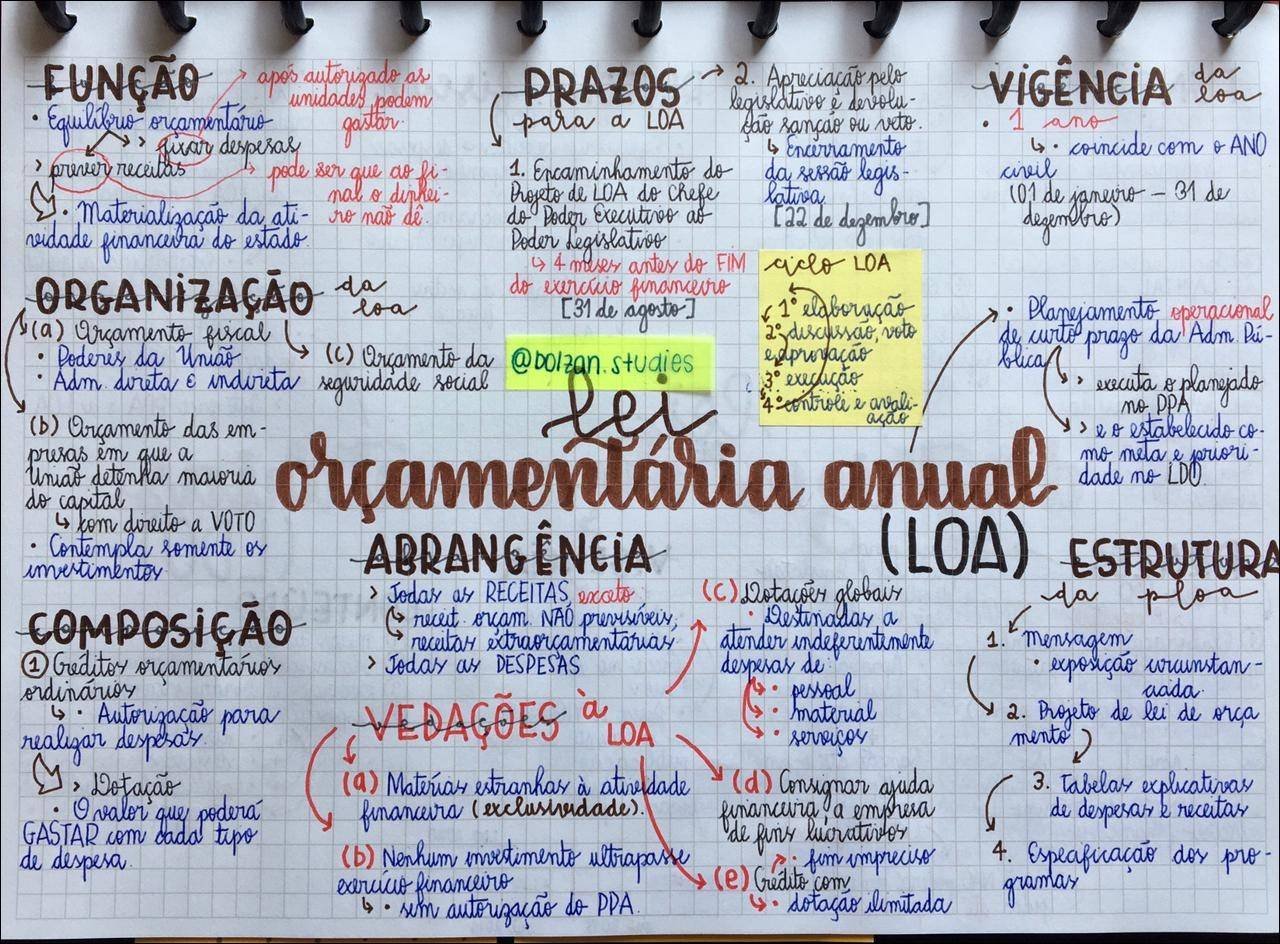 FUNÇÃO
após autorizado as
unidades podem
gastar.
• Equilíbrio orçamentário
> fixar despesas
> prever receitas
pode ser que ao fi-
nal o dinhei-
ro não dê.
• Materialização da ati-
vidade financeira do estado.
ORGANIZAÇÃO da
loa
(a) Orçamento fiscal
• Poderes da União
• Adm. direta E indireta
(c) Orçamento da
seguridade social
(b) Orçamento das em-
presas em que a
União detenha maioria
do capital
↳ com direito a VOTO
• Contempla somente os
investimentos
COMPOSIÇÃO
① Créditos orçamentários
ordinários
↳ • Autorização para
realizar despesas.
> Dotação
• O valor que poderá
GASTAR com cada tipo
de despesa.
PRAZOS
para a LOA
1. Encaminhamento do
Projeto de LOA do Chefe
do Poder Executivo ao
Poder Legislativo
↳ 4 meses antes do FIM
do exercício financeiro
[31 de agosto]
→ 2. Apreciação pelo
legislativo e devolu-
ção sanção ou veto.
↳ Encerramento
da sessão legis-
lativa
[22 de dezembro]
@bolzan.studies
ciclo LOA
1° elaboração
2° discussão, voto
e aprovação
3° execução
4° controle e avali-
ação
VIGÊNCIA da
loa
• 1 ano
↳ • coincide com o ANO
civil
(01 de janeiro – 31 de
dezembro)
• Planejamento operacional
de curto prazo da Adm. Pú-
blica
> executa o planejado
no PPA
> e o estabelecido co-
mo meta e priori-
dade no LDO.
lei
orçamentária anual
(LOA)
ABRANGÊNCIA
> Todas as RECEITAS, exceto
↳ receit. orçam. NÃO previsíveis,
↳ receitas extraorçamentárias
> Todas as DESPESAS
VEDAÇÕES à
LOA
(a) Matérias estranhas à atividade
financeira (exclusividade).
(b) Nenhum investimento ultrapasse
exercício financeiro
↳ • sem autorização do PPA.
(c) Dotações globais
• Destinadas a
atender indeferentemente
despesas de:
• pessoal
• material
• serviços
(d) Consignar ajuda
financeira a empresa
de fins lucrativos
• fim impreciso
(e) Crédito com
↳ • dotação ilimitada
ESTRUTURA
da ploa
1. Mensagem
• exposição circunstan-
ciada.
2. Projeto de lei de orça
mento
3. Tabelas explicativas
de despesas e receitas
4. Especificação dos pro-
gramas